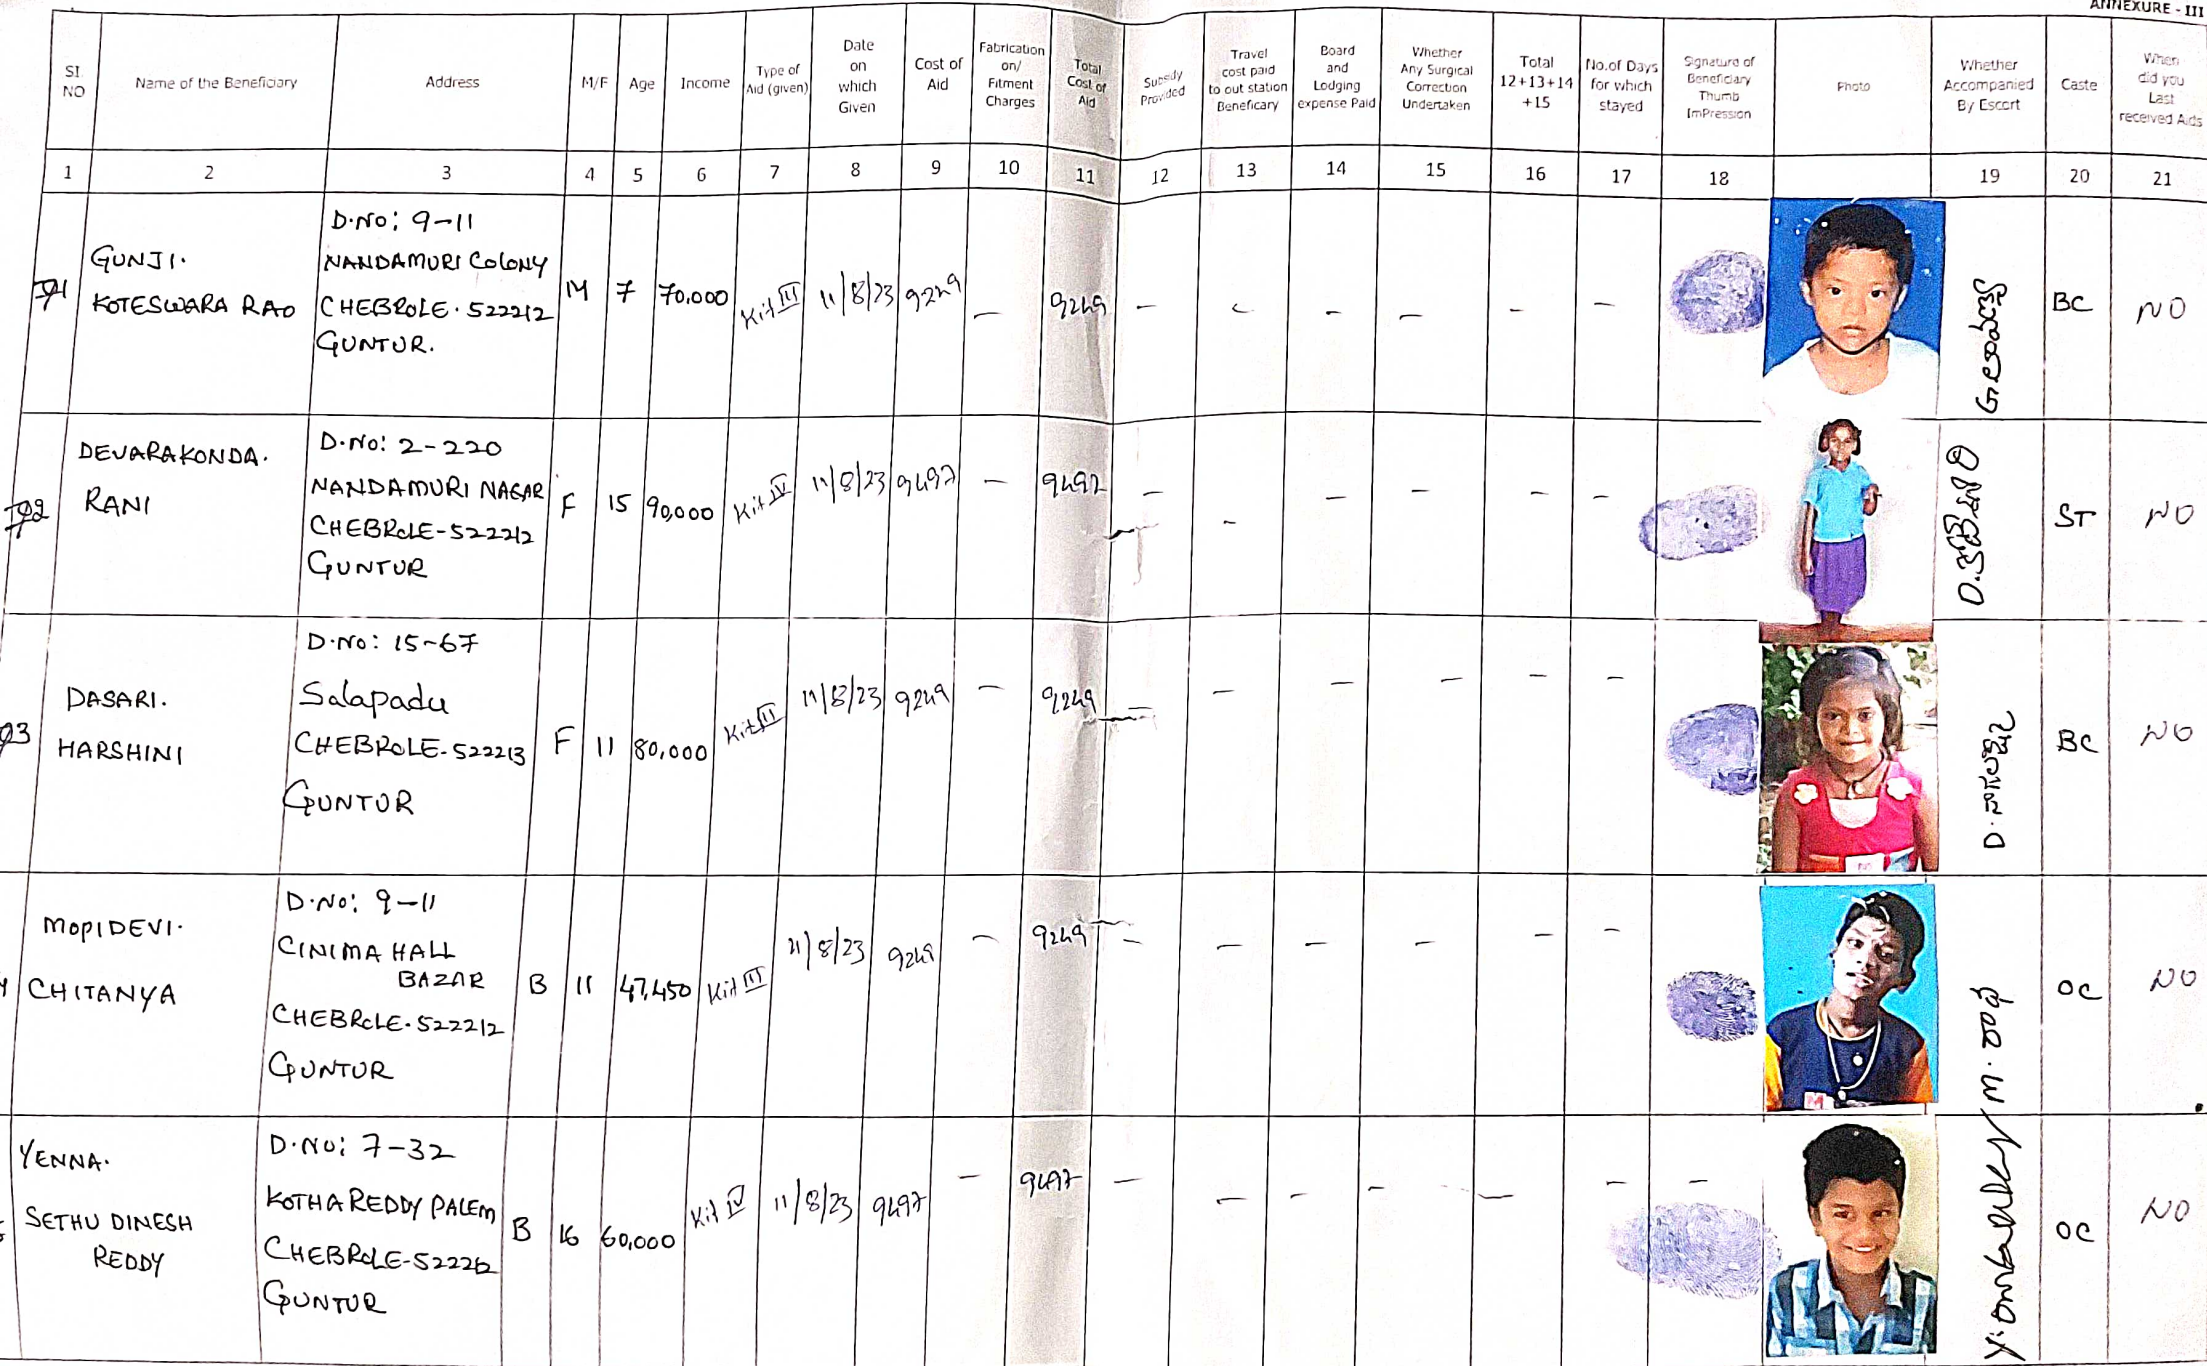 ANNEXURE - III
SI. NO
Name of the Beneficiary
Address
M/F
Age
Income
Type of Aid (given)
Date on which Given
Cost of Aid
Fabrication on/ Fitment Charges
Total Cost of Aid
Subsidy Provided
Travel cost paid to out station Beneficary
Board and Lodging expense Paid
Whether Any Surgical Correction Undertaken
Total 12+13+14 +15
No.of Days for which stayed
Signature of Beneficiary Thumb ImPression
Photo
Whether Accompanied By Escort
Caste
When did you Last received Aids
1 2 3 4 5 6 7 8 9 10 11 12 13 14 15 16 17 18 19 20 21
GUNJI.
KOTESWARA RAO
D.No: 9-11
NANDAMURI COLONY
CHEBROLE. 522212
GUNTUR.
M 7 70,000 Kit III 11/8/23 9249 — 9249 — — — — — — BC NO
DEVARAKONDA.
RANI
D.No: 2-220
NANDAMURI NAGAR
CHEBROLE-522212
GUNTUR
F 15 90,000 Kit IV 11/8/23 9497 — 9497 — — — — — — ST NO
93
DASARI.
HARSHINI
D.No: 15-67
Salapadu
CHEBROLE-522213
GUNTUR
F 11 80,000 Kit III 11/8/23 9249 — 9249 — — — — — — D. నాగలక్ష్మి BC NO
MOPIDEVI.
CHITANYA
D.No: 9-11
CINIMA HALL
BAZAR
CHEBROLE-522212
GUNTUR
B 11 47,450 Kit III 11/8/23 9249 — 9249 — — — — — — M. రాధ OC NO
YENNA.
SETHU DINESH
REDDY
D.No: 7-32
KOTHA REDDY PALEM
CHEBROLE-522212
GUNTUR
B 16 60,000 Kit IV 11/8/23 9497 — 9497 — — — — — — — OC NO